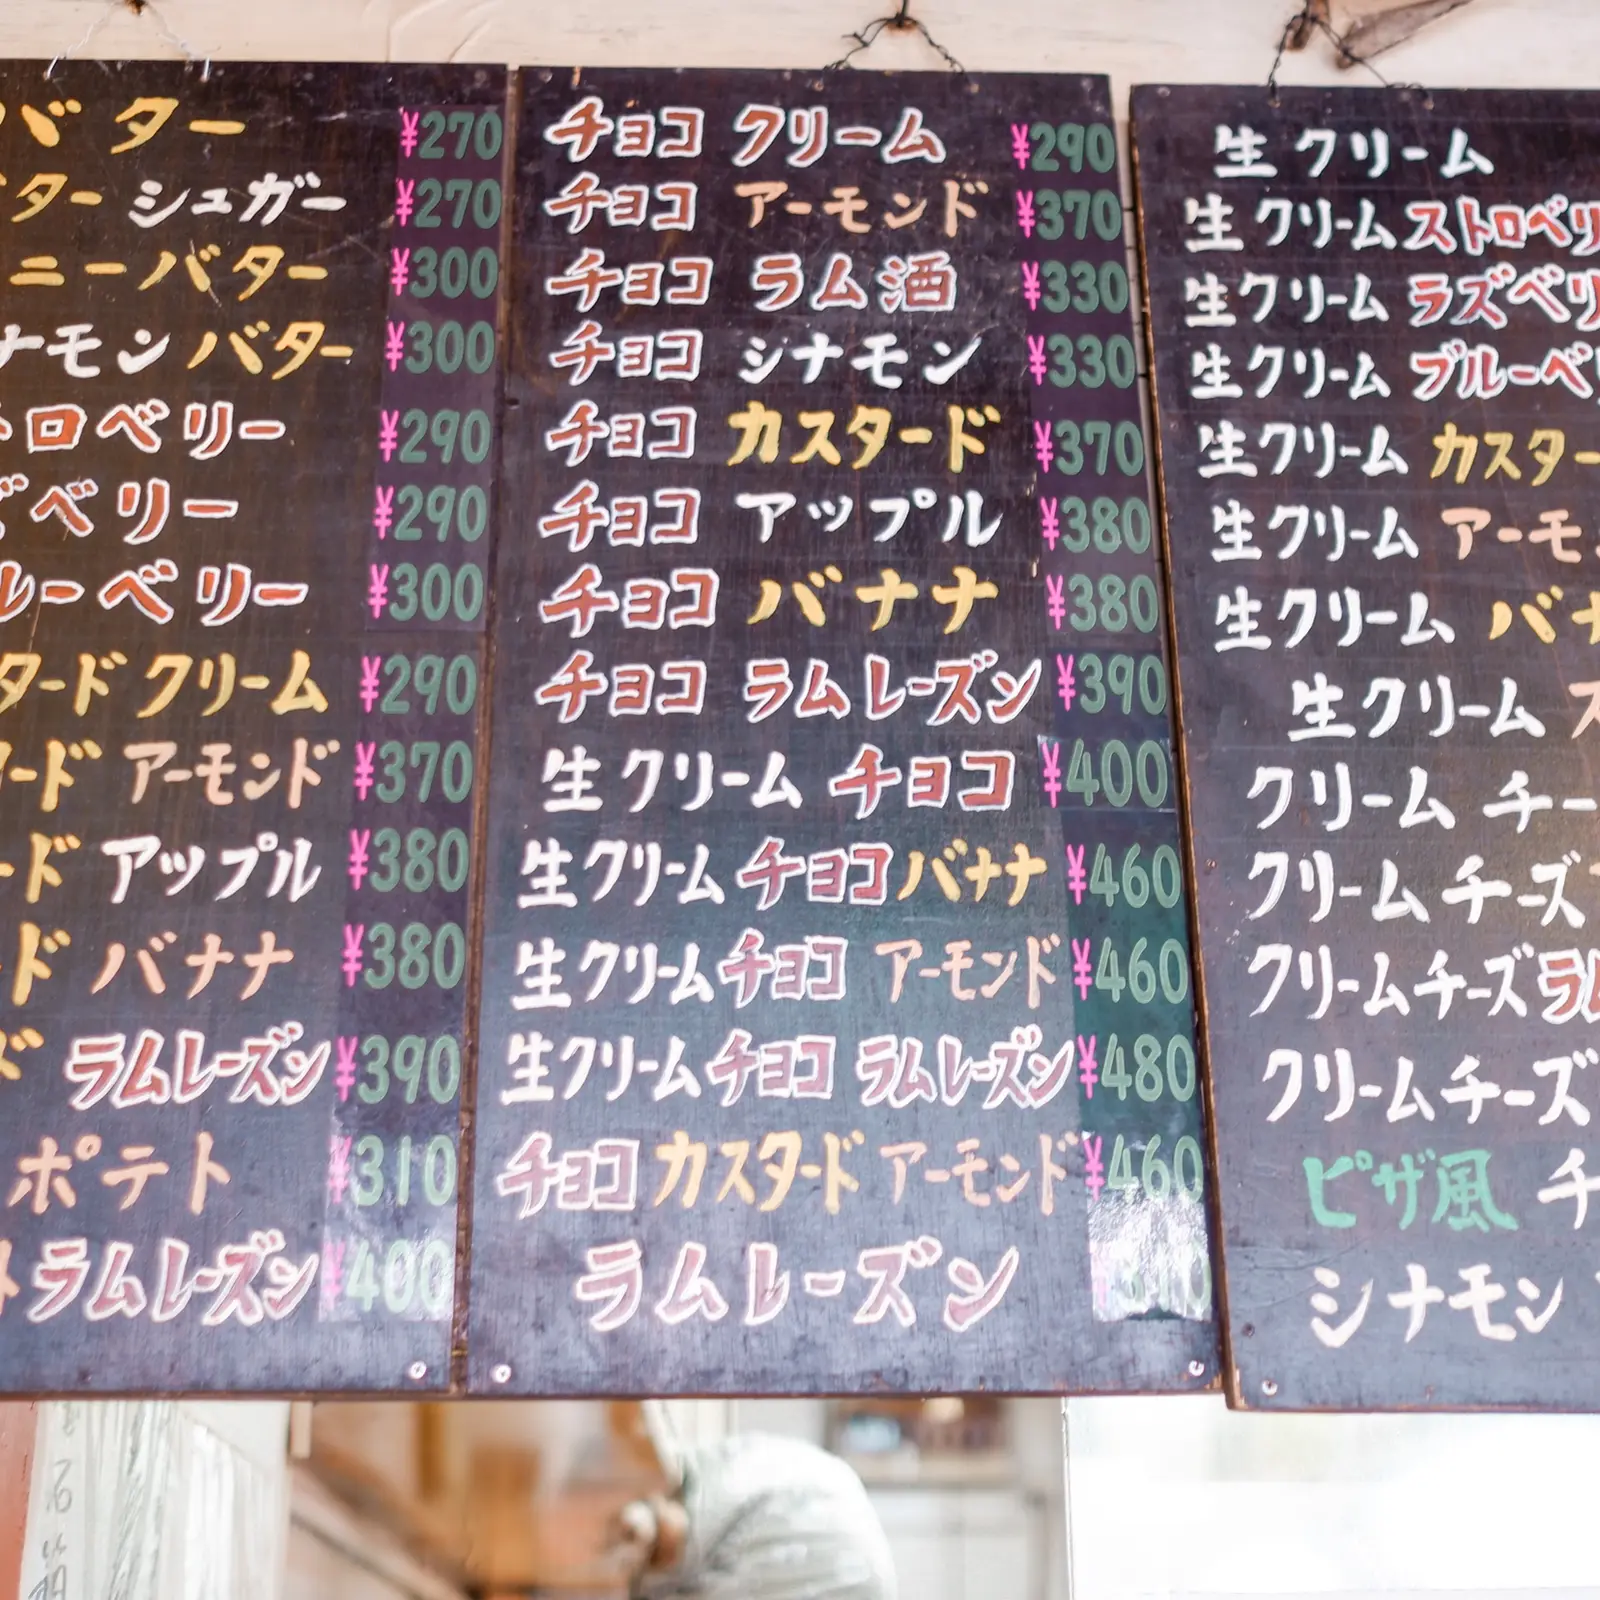 バター ¥270
ター シュガー ¥270
ニーバター ¥300
ナモン バター ¥300
トロベリー ¥290
ズベリー ¥290
ルーベリー ¥300
タード クリーム ¥290
ード アーモンド ¥370
ード アップル ¥380
ード バナナ ¥380
ラムレーズン ¥390
ポテト ¥310
ト ラムレーズン ¥400
チョコ クリーム ¥290
チョコ アーモンド ¥370
チョコ ラム酒 ¥330
チョコ シナモン ¥330
チョコ カスタード ¥370
チョコ アップル ¥380
チョコ バナナ ¥380
チョコ ラムレーズン ¥390
生クリーム チョコ ¥400
生クリーム チョコ バナナ ¥460
生クリーム チョコ アーモンド ¥460
生クリーム チョコ ラムレーズン ¥480
チョコ カスタード アーモンド ¥460
ラムレーズン ¥310
生クリーム
生クリーム ストロベリ
生クリーム ラズベリ
生クリーム ブルーベリ
生クリーム カスター
生クリーム アーモ
生クリーム バナ
生クリーム ス
クリーム チー
クリーム チーズ
クリームチーズ ラム
クリームチーズ
ピザ風 チ
シナモン